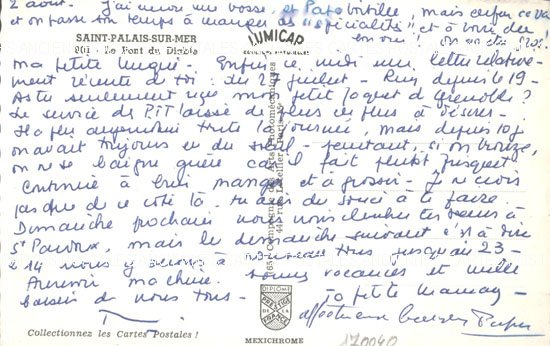 2 août. J'ai encore un rosse, et Papa bibille, mais enfin ce va
et on passe son temps à manger des "spécialités", et à voir du
SAINT-PALAIS-SUR-MER
LUMICAP
801 - Le Pont du Diable
ma petite Enfin ce midi une lettre relative-
ment récente de toi : du 27 juillet - Rien depuis le 19 -
As tu seulement reçu mon petit paquet de Grenoble ?
Le service de P.T.T laisse de plus en plus à désirer -
Il a plu aujourd'hui toute la journée, mais depuis 10 j
on avait toujours eu du soleil - pourtant, si on bronze,
on ne se baigne guère car il fait plutôt frisquet
Continue à bien manger et à grossir - Je ne crois
pas que de ce côté là tu aies du souci à te faire.
Dimanche prochain nous irons chercher tes sœurs à
St mais le dimanche suivant c'est à dire
le 14 nous y serons à nouveau tous jusqu'au 23 -
Au revoir ma chérie. bonnes vacances et mille
baisers de nous tous - Ta petite Maman -
affectueux baisers Papa
DIPLOME
PRESTIGE
DE LA
FRANCE
Collectionnez les Cartes Postales !
MEXICHROME
170040